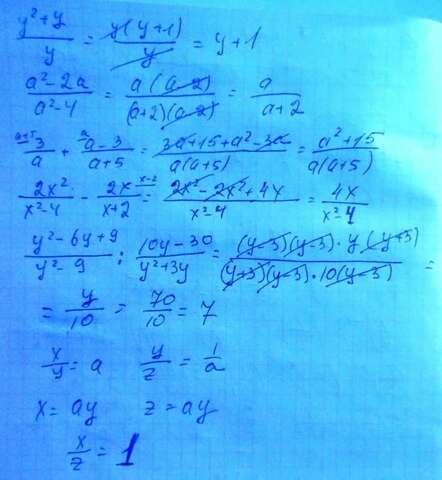 (y²+y)/y = y(y+1)/y = y+1
(a²-2a)/(a²-4) = a(a-2)/((a+2)(a-2)) = a/(a+2)
a+5 3/a + a (a-3)/(a+5) = (3a+15+a²-3a)/(a(a+5)) = (a²+15)/(a(a+5))
2x²/(x²-4) - 2x/(x+2) x-2 = (2x²-2x²+4x)/(x²-4) = 4x/(x²-4)
(y²-6y+9)/(y²-9) : (10y-30)/(y²+3y) = ((y-3)(y-3)·y(y+3))/((y+3)(y-3)·10(y-3)) =
= y/10 = 70/10 = 7
x/y = a y/z = 1/a
x = ay z = ay
x/z = 1